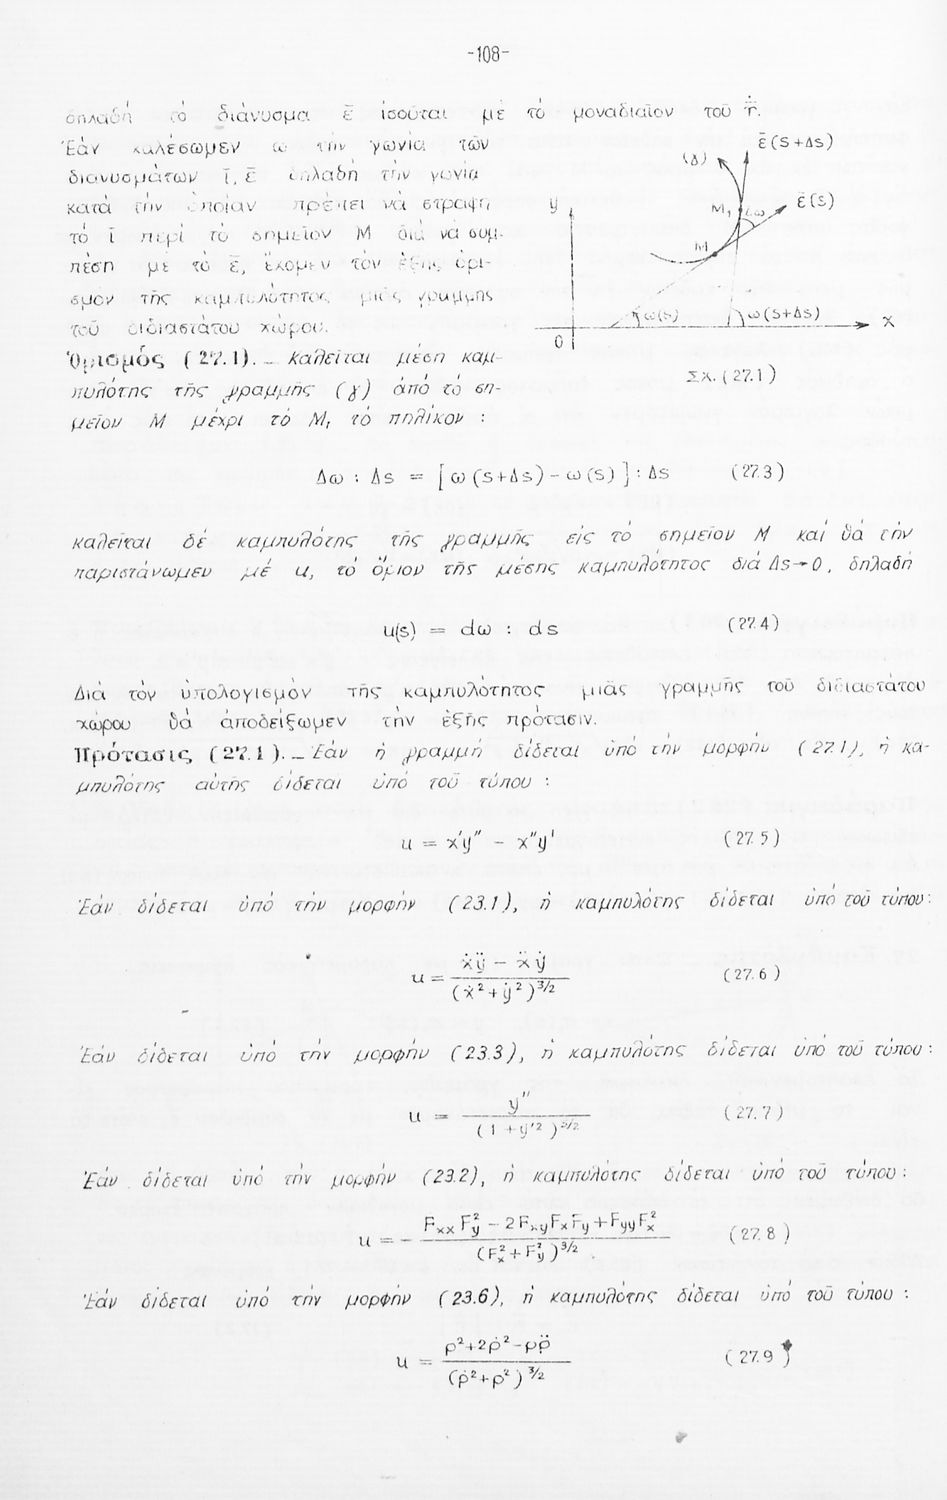 -108-
δηλαδή τό διάνυσμα ε̄ ἰσοῦται μέ τό μοναδιαῖον τοῦ r̈.
Ἐάν καλέσωμεν ω τήν γωνία τῶν
διανυσμάτων ῑ, ε̄ δηλαδή τήν γωνία
κατά τήν ὁποίαν πρέπει νά στραφῇ
τό ῑ περί τό σημεῖον M διά νά συμ-
πέση μέ τό ε̄, ἔχομεν τόν ἑξῆς ὁρι-
σμόν τῆς καμπυλότητος μιᾶς γραμμῆς
τοῦ διδιαστάτου χώρου.
(Δ)
ε̄(S+Δs)
y
M₁
Δω
ε̄(s)
M
ω(s)
ω(S+Δs)
x
0
Σχ. (27.1)
Ὁρισμός (27.1)._ Καλεῖται μέση καμ-
πυλότης τῆς γραμμῆς (γ) ἀπό τό ση-
μεῖον M μέχρι τό M₁ τό πηλίκον :
Δω : Δs = [ω(s+Δs)-ω(s)] : Δs (27.3)
καλεῖται δέ καμπυλότης τῆς γραμμῆς εἰς τό σημεῖον M καί θά τήν
παριστάνωμεν μέ u, τό ὅριον τῆς μέσης καμπυλότητος διά Δs→0, δηλαδή
u(s) = dω : ds (27.4)
Διά τόν ὑπολογισμόν τῆς καμπυλότητος μιᾶς γραμμῆς τοῦ διδιαστάτου
χώρου θά ἀποδείξωμεν τήν ἑξῆς πρότασιν.
Πρότασις (27.1)._ Ἐάν ἡ γραμμή δίδεται ὑπό τήν μορφήν (27.1), ἡ κα-
μπυλότης αὐτῆς δίδεται ὑπό τοῦ τύπου :
u = x'y'' - x''y' (27.5)
Ἐάν δίδεται ὑπό τήν μορφήν (23.1), ἡ καμπυλότης δίδεται ὑπό τοῦ τύπου:
u = (ẋÿ - ẍẏ) / (ẋ²+ẏ²)^3/2 (27.6)
Ἐάν δίδεται ὑπό τήν μορφήν (23.3), ἡ καμπυλότης δίδεται ὑπό τοῦ τύπου :
u = y'' / (1+y'²)^3/2 (27.7)
Ἐάν δίδεται ὑπό τήν μορφήν (23.2), ἡ καμπυλότης δίδεται ὑπό τοῦ τύπου :
u = - (F_xx F_y² - 2F_xy F_x F_y + F_yy F_x²) / (F_x² + F_y²)^3/2 (27.8)
Ἐάν δίδεται ὑπό τήν μορφήν (23.6), ἡ καμπυλότης δίδεται ὑπό τοῦ τύπου :
u = (ρ²+2ρ̇²-ρρ̈) / (ρ̇²+ρ²)^3/2 (27.9)